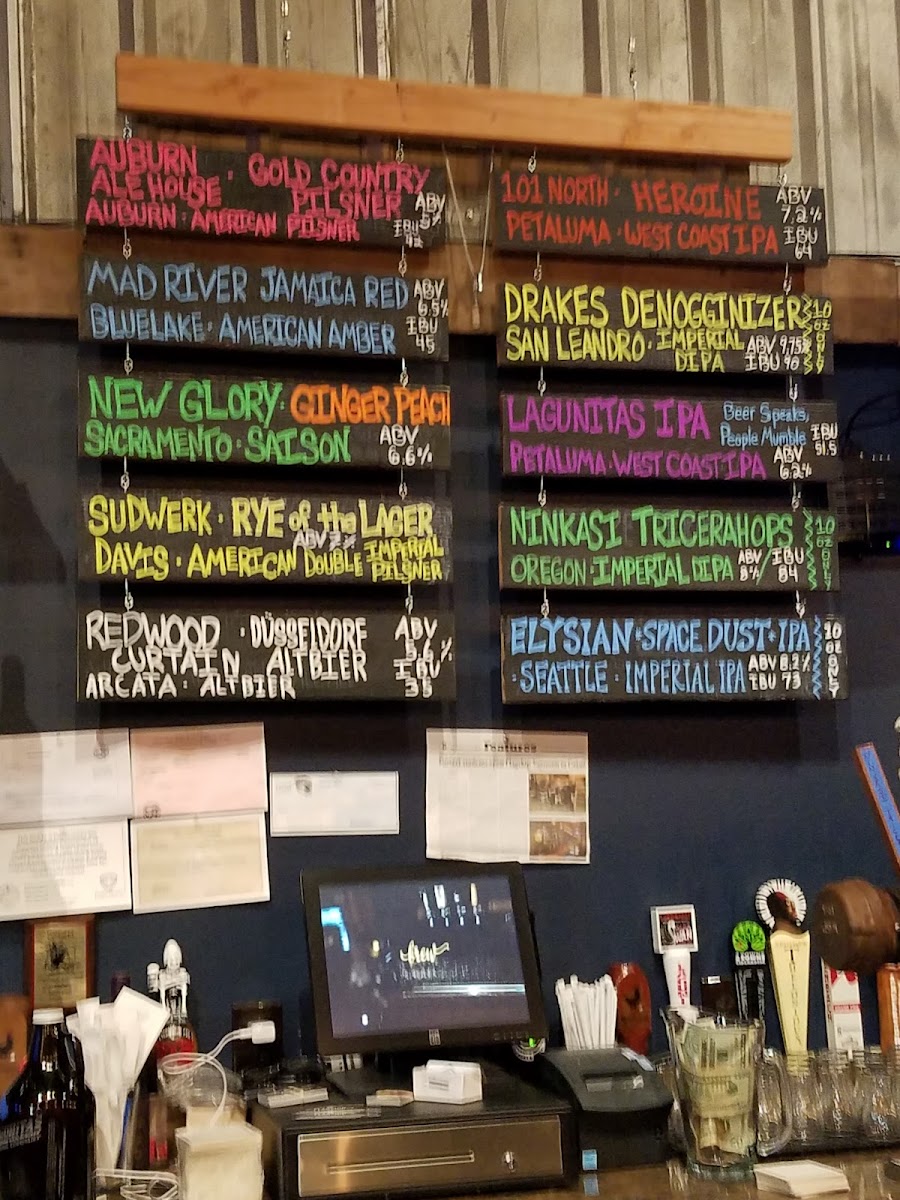 AUBURN
ALE HOUSE · GOLD COUNTRY
PILSNER ABV
5%
AUBURN · AMERICAN PILSNER IBU
MAD RIVER JAMAICA RED ABV
6.5%
BLUELAKE · AMERICAN AMBER IBU
45
NEW GLORY · GINGER PEACH
SACRAMENTO · SAISON ABV
6.6%
SUDWERK · RYE of the LAGER
ABV
DAVIS · AMERICAN DOUBLE IMPERIAL
PILSNER
REDWOOD · DÜSSELDORF ABV
CURTAIN ALTBIER 5.6%
IBU
ARCATA · ALTBIER 35
101 NORTH · HEROINE ABV
7.2%
PETALUMA · WEST COAST IPA IBU
64
DRAKES DENOGGINIZER 10
OZ
ONLY
SAN LEANDRO · IMPERIAL ABV 9.75%
DIPA IBU 90
LAGUNITAS IPA Beer Speaks,
People Mumble IBU
51.5
PETALUMA · WEST COAST IPA ABV
6.2%
NINKASI TRICERAHOPS 10
OZ
ONLY
OREGON · IMPERIAL DIPA ABV
8% / IBU
84
ELYSIAN · SPACE DUST · IPA 10
OZ
ONLY
· SEATTLE · IMPERIAL IPA ABV 8.2%
IBU 73
Features